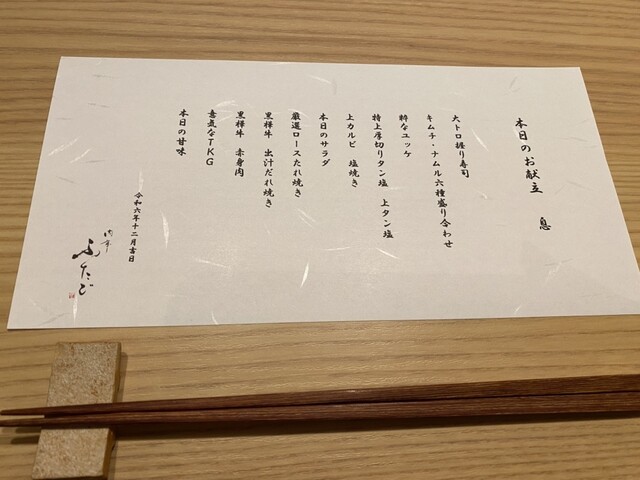 本日のお献立　息
大トロ握り寿司
キムチ・ナムル六種盛り合わせ
粋なユッケ
特上厚切りタン塩　上タン塩
上カルビ　塩焼き
本日のサラダ
厳選ロースたれ焼き
黒樺牛　出汁だれ焼き
黒樺牛　赤身肉
意気なTKG
本日の甘味
令和六年十二月吉日
肉亭
ふたご